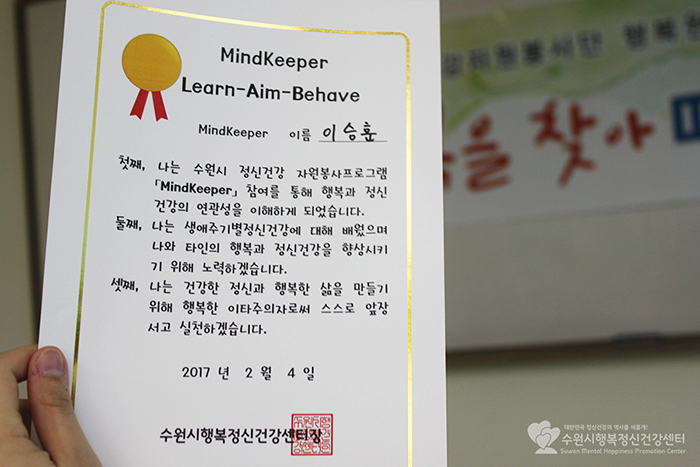 MindKeeper
Learn-Aim-Behave
MindKeeper 이름 이승훈
첫째, 나는 수원시 정신건강 자원봉사프로그램
「MindKeeper」 참여를 통해 행복과 정신
건강의 연관성을 이해하게 되었습니다.
둘째, 나는 생애주기별정신건강에 대해 배웠으며
나와 타인의 행복과 정신건강을 향상시키
기 위해 노력하겠습니다.
셋째, 나는 건강한 정신과 행복한 삶을 만들기
위해 행복한 이타주의자로써 스스로 앞장
서고 실천하겠습니다.
2017 년 2 월 4 일
수원시행복정신건강센터장
자원봉사단 행복
을 찾아
대한민국 정신건강의 역사를 새롭게!
수원시행복정신건강센터
Suwon Mental Happiness Promotion Center